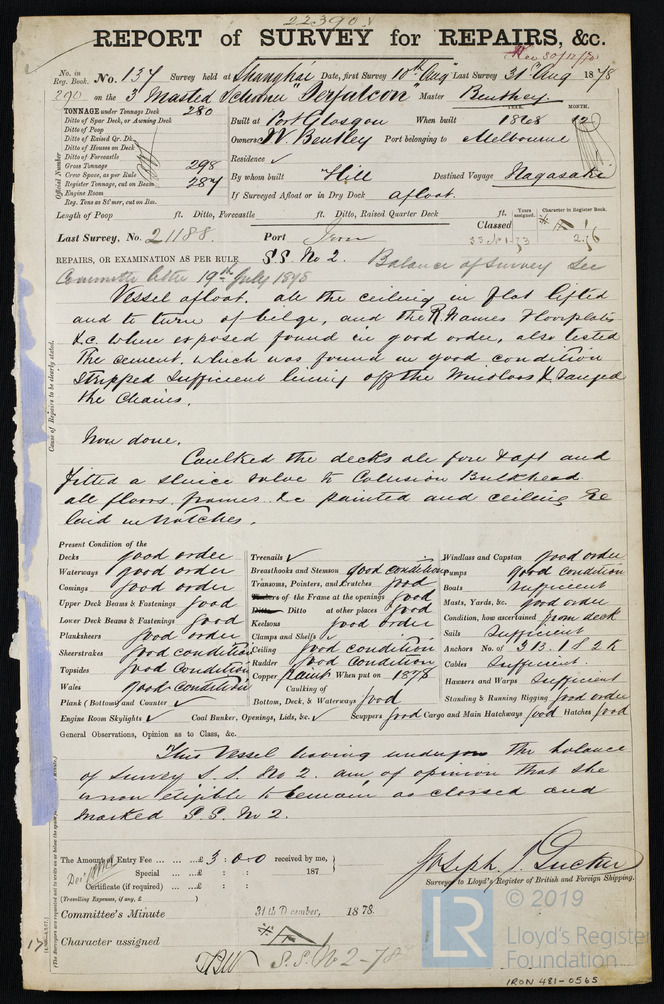 22390
REPORT of SURVEY for REPAIRS, &c.
No. in Reg. Book. No. 134 Survey held at Shanghai Date, first Survey 10th Aug Last Survey 31st Aug 1878
290 on the 3 Masted Schooner "Gerfalcon" Master Bentley
TONNAGE under Tonnage Deck 280
Ditto of Spar Deck, or Awning Deck
Ditto of Poop
Ditto of Raised Qr. Dk.
Ditto of Houses on Deck
Ditto of Forecastle
Gross Tonnage 298
Crew Space, as per Rule
Register Tonnage, cut on Beam 287
Engine Room
Reg. Tons as St'mer, cut on Bm.
Official Number
Built at Port Glasgow When built YEAR. 1868 MONTH. 12
Owners W. Bentley Port belonging to Melbourne
Residence ✓
By whom built Hill Destined Voyage Nagasaki
If Surveyed Afloat or in Dry Dock afloat.
Length of Poop ft. Ditto, Forecastle ft. Ditto, Raised Quarter Deck ft.
Years assigned. Character in Register Book.
Classed
Last Survey, No. 21188 Port Iron
REPAIRS, OR EXAMINATION AS PER RULE S.S. No 2. Balance of survey See
Committee letter 19th July 1878
Cause of Repairs to be clearly stated.
Vessel afloat, all the ceiling in flat lifted
and to turn of bilge, and the R. Frames Floorplates
&c. where exposed found in good order, also tested
the cement, which was found in good condition
Stripped sufficient lining off the Windlass & ranged
the Chains.
Now done.
Caulked the decks all fore & aft and
fitted a sluice valve to Collision Bulkhead
all floors, frames &c painted and ceiling re
laid in hatches.
Present Condition of the
Decks good order
Waterways good order
Comings good order
Upper Deck Beams & Fastenings good
Lower Deck Beams & Fastenings good
Planksheers good order
Sheerstrakes good condition
Topsides good condition
Wales good condition
Plank (Bottom) and Counter ✓
Engine Room Skylights ✓ Coal Bunker, Openings, Lids, &c. ✓ Scuppers good Cargo and Main Hatchways good Hatches good
Treenails ✓
Breasthooks and Stemson good condition
Transoms, Pointers, and Crutches good
Timbers of the Frame at the openings good
Ditto Ditto at other places good
Keelsons good order
Clamps and Shelfs ✓
Ceiling good condition
Rudder good condition
Copper paint When put on 1878
Caulking of
Bottom, Deck, & Waterways good
Windlass and Capstan good order
Pumps good condition
Boats Sufficient
Masts, Yards, &c. good order
Condition, how ascertained from deck
Sails Sufficient
Anchors No. of 3 B. 1 S. 2 K
Cables Sufficient.
Hawsers and Warps Sufficient
Standing & Running Rigging good order
General Observations, Opinion as to Class, &c.
This Vessel having undergone the balance
of survey S.S. No 2. am of opinion that she
is now eligible to remain as classed and
marked S.S. No 2.
The Amount of Entry Fee ... ... £ 3 : 0 : 0 received by me,
Special ... ... £ : : 187
Certificate (if required) ... £ : :
(Travelling Expenses, if any, £ )
Joseph J. Tucker
Surveyor to Lloyd's Register of British and Foreign Shipping.
Committee's Minute 31th December, 1878.
Character assigned
S.S. No 2-78
© 2019
LR
Lloyd's Register
Foundation
IRON 481-0565